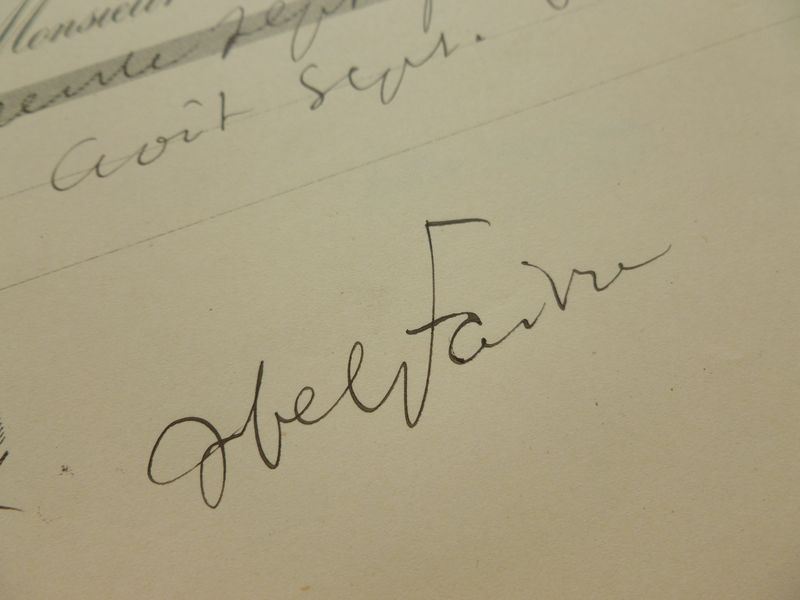 Monsieur
août Sept.
Abel Faivre